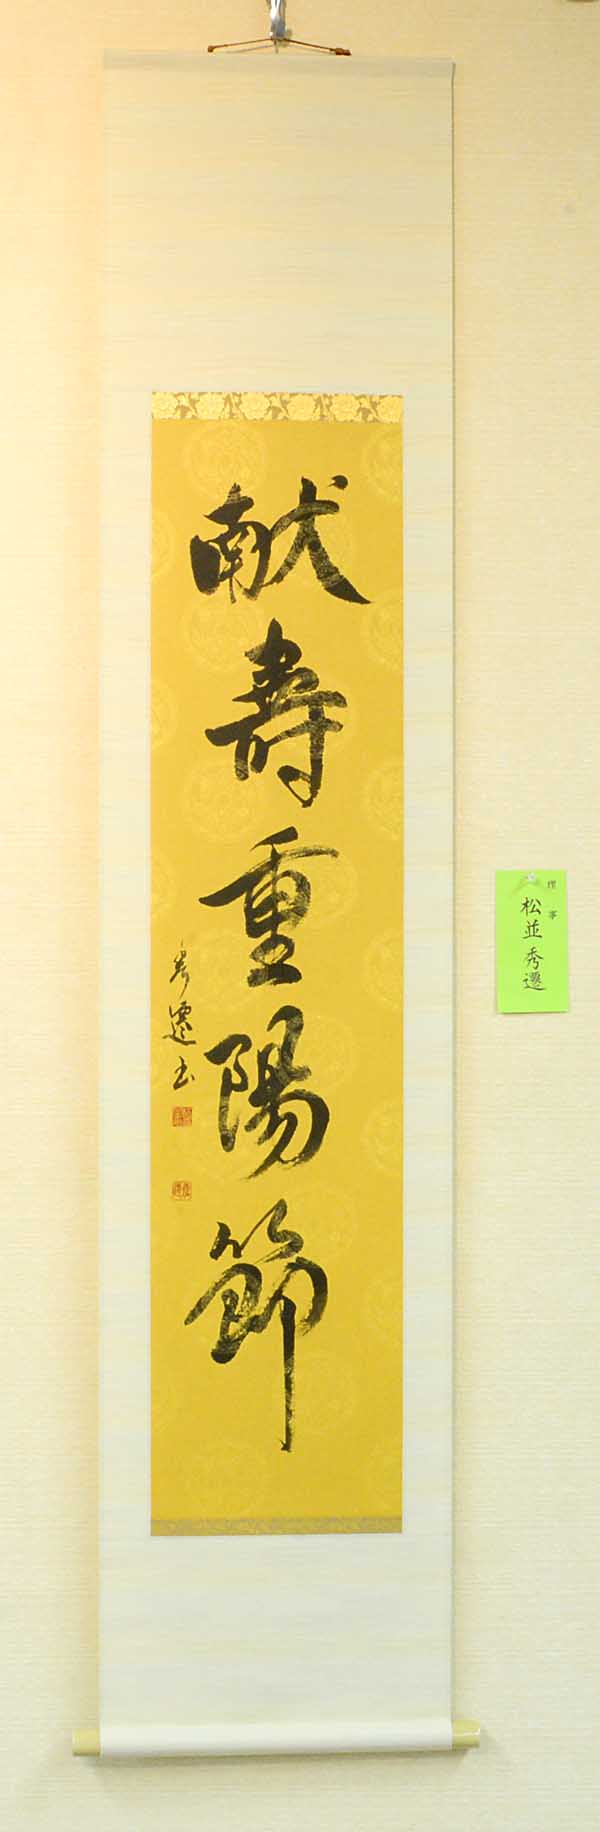 献壽重陽節
秀遷書
理事
松並秀遷